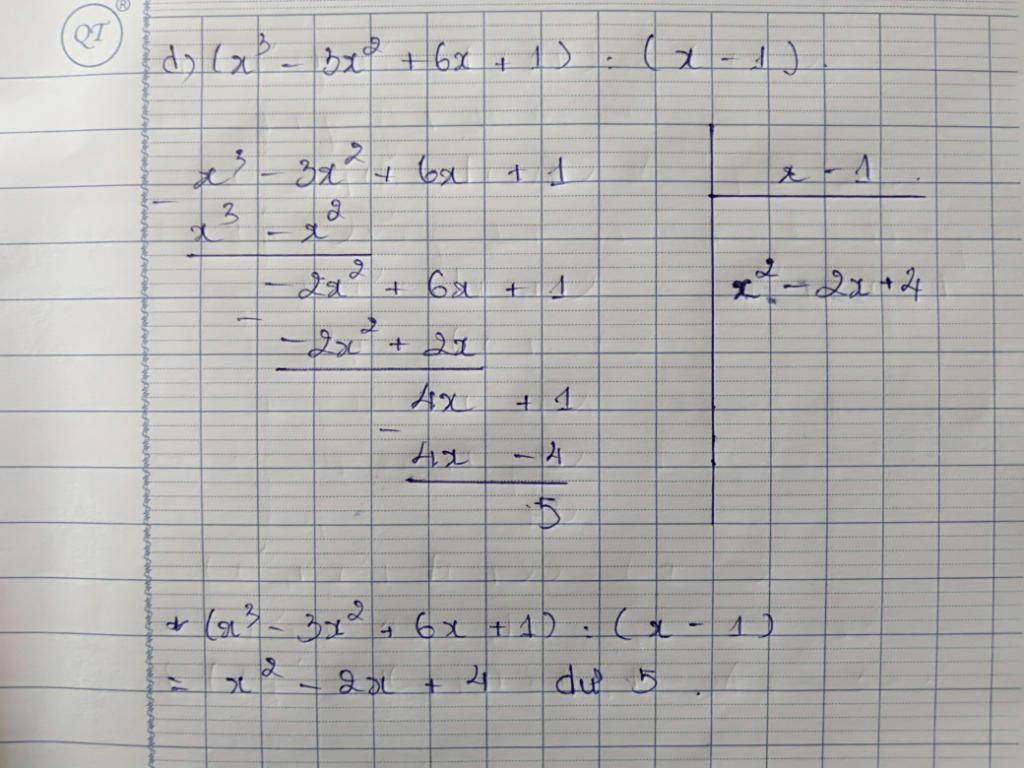 QT ®
d) (x³ - 3x² + 6x + 1) : (x - 1).
x³ - 3x² + 6x + 1
x - 1.
- x³ - x²
- 2x² + 6x + 1
x² - 2x + 4
- - 2x² + 2x
4x + 1
- 4x - 4
5
* (x³ - 3x² + 6x + 1) : (x - 1)
= x² - 2x + 4 dư 5.